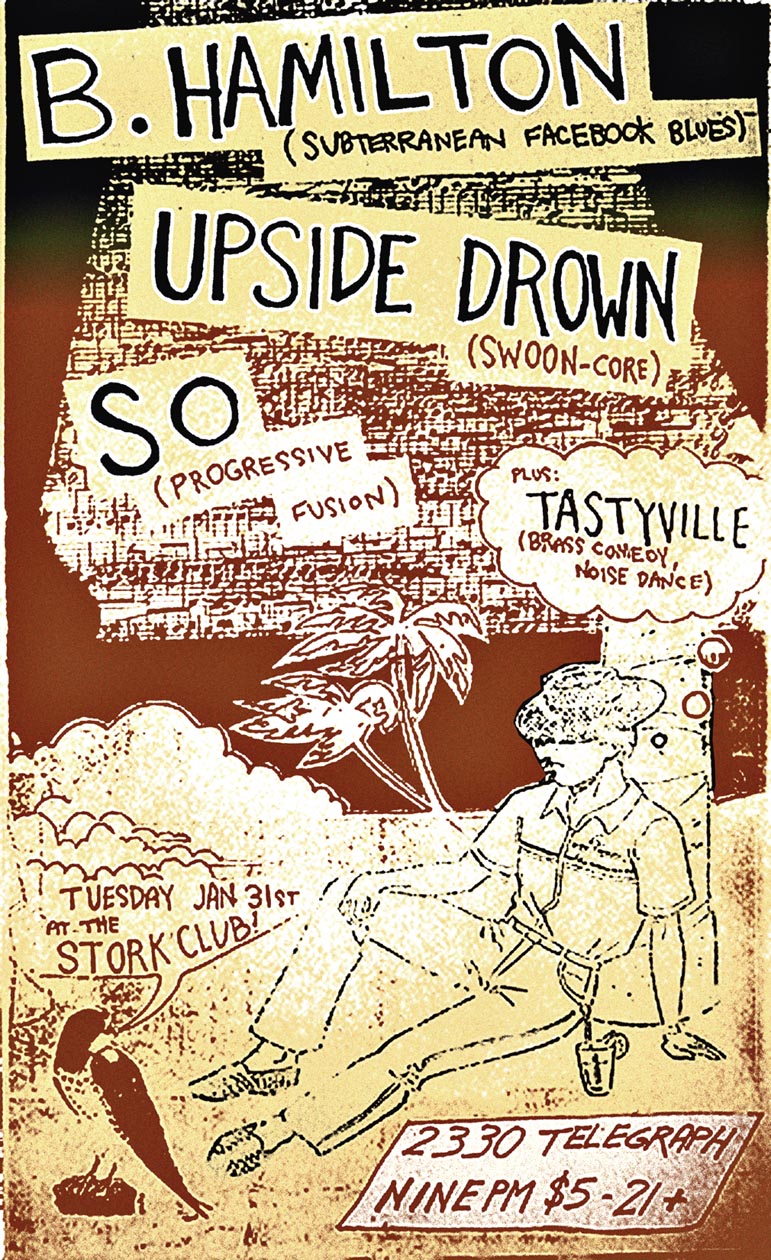 B. HAMILTON
(SUBTERRANEAN FACEBOOK BLUES)
UPSIDE DROWN
(SWOON-CORE)
SO
(PROGRESSIVE
FUSION)
PLUS:
TASTYVILLE
(BRASS COMEDY,
NOISE DANCE)
TUESDAY JAN 31ST
AT THE
STORK CLUB!
2330 TELEGRAPH
NINE PM $5-21+